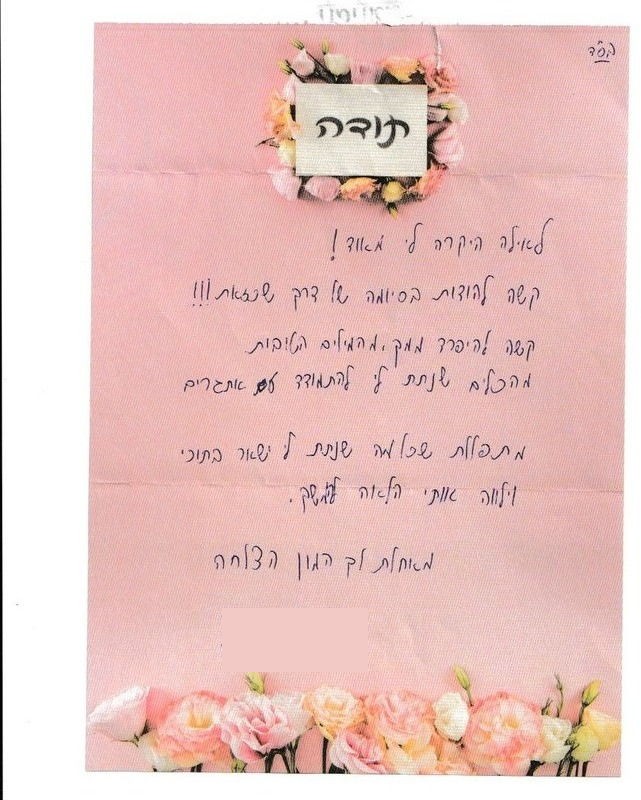 בס"ד
תודה
לאילה היקרה לי מאוד!
קשה להודות בסיומה של דרך שכזאת!!!
קשה להיפרד ממך, מהמילים הטובות
מהכלים שנתת לי להתמודד עם אתגרים
מתפללת שכל מה שנתת לי ישאר בתוכי
וילווה אותי הלאה להמשך.
מאחלת לך המון הצלחה